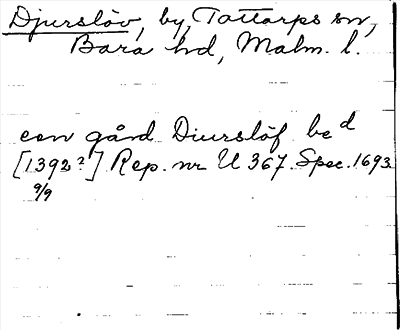 Djurslöv, by, Tottarps sn,
Bara hd, Malm. l.
een gård Diurslöf be d
[1392?] Rep. nr U 367. Spec. 1693
9/9